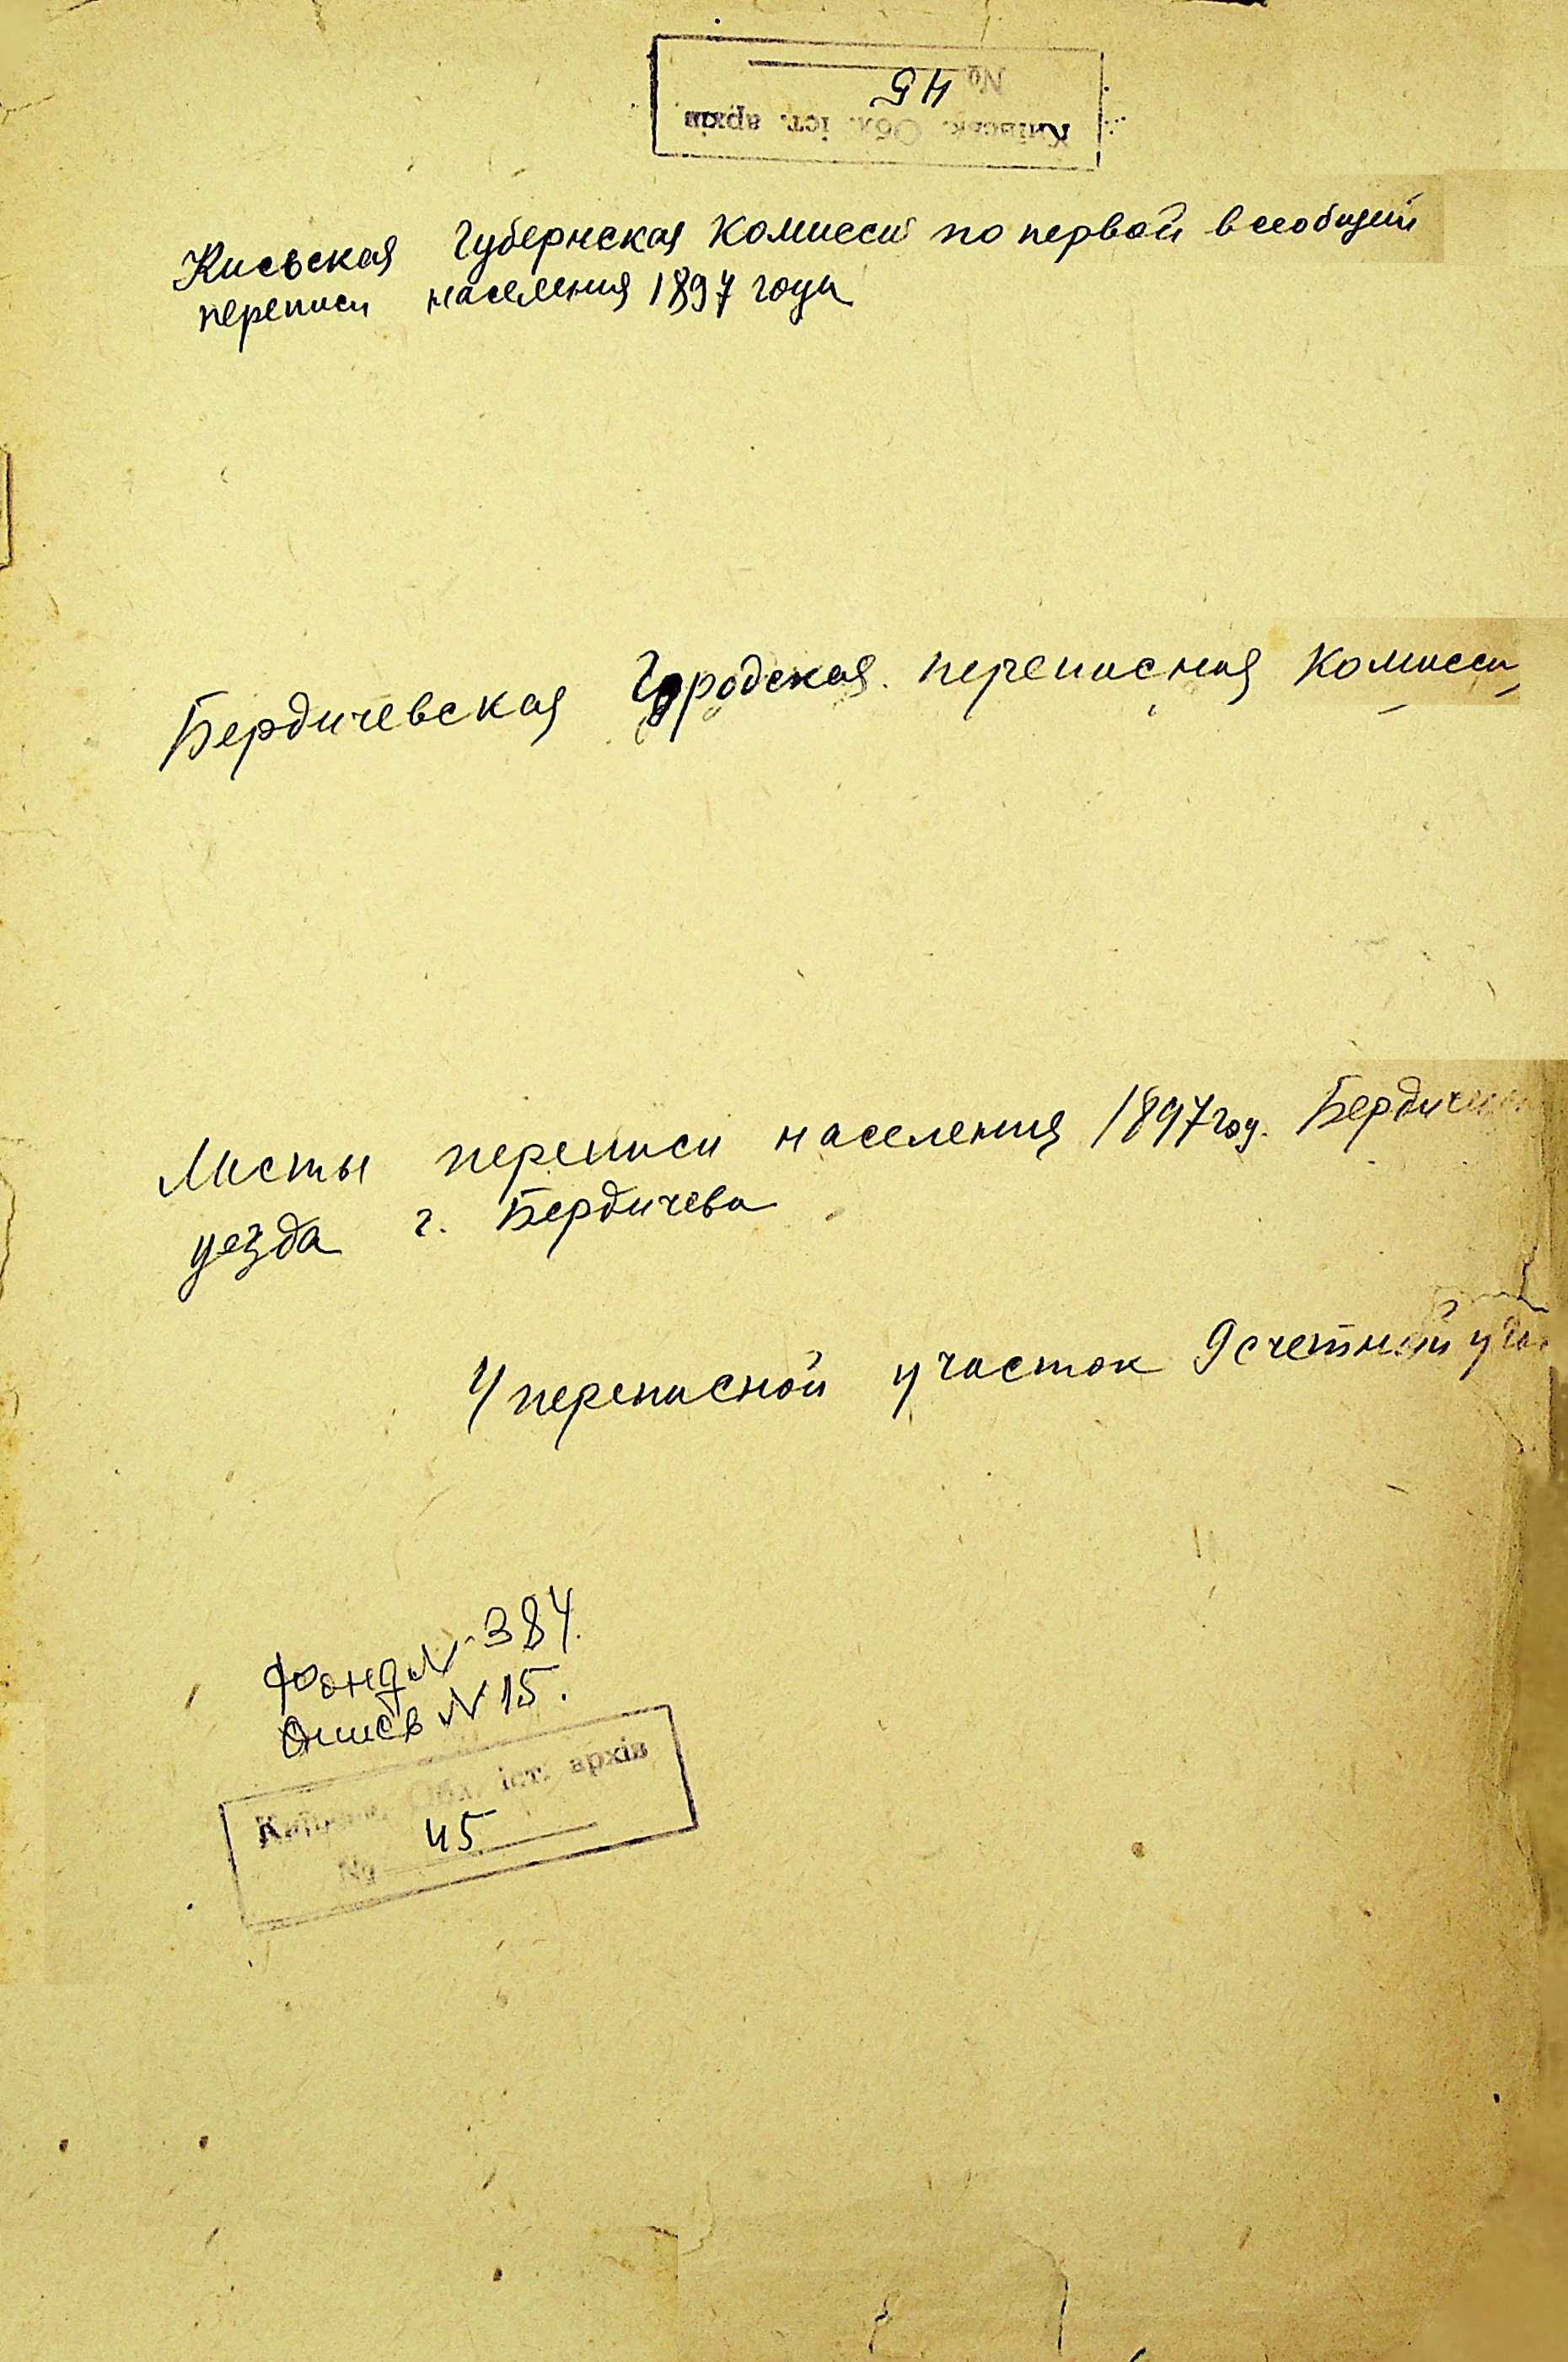 № 45
Київськ. Обл. іст. архів
Киевская Губернская Комиссия по первой всеобщей
переписи населения 1897 года
Бердичевская Городская переписная Комиссия
Листы переписи населения 1897 год.
уезда г. Бердичева
4 переписной участок 9 счетный
Фонд № 384.
Опись № 15.
Київськ. Обл. іст. архів
№ 45